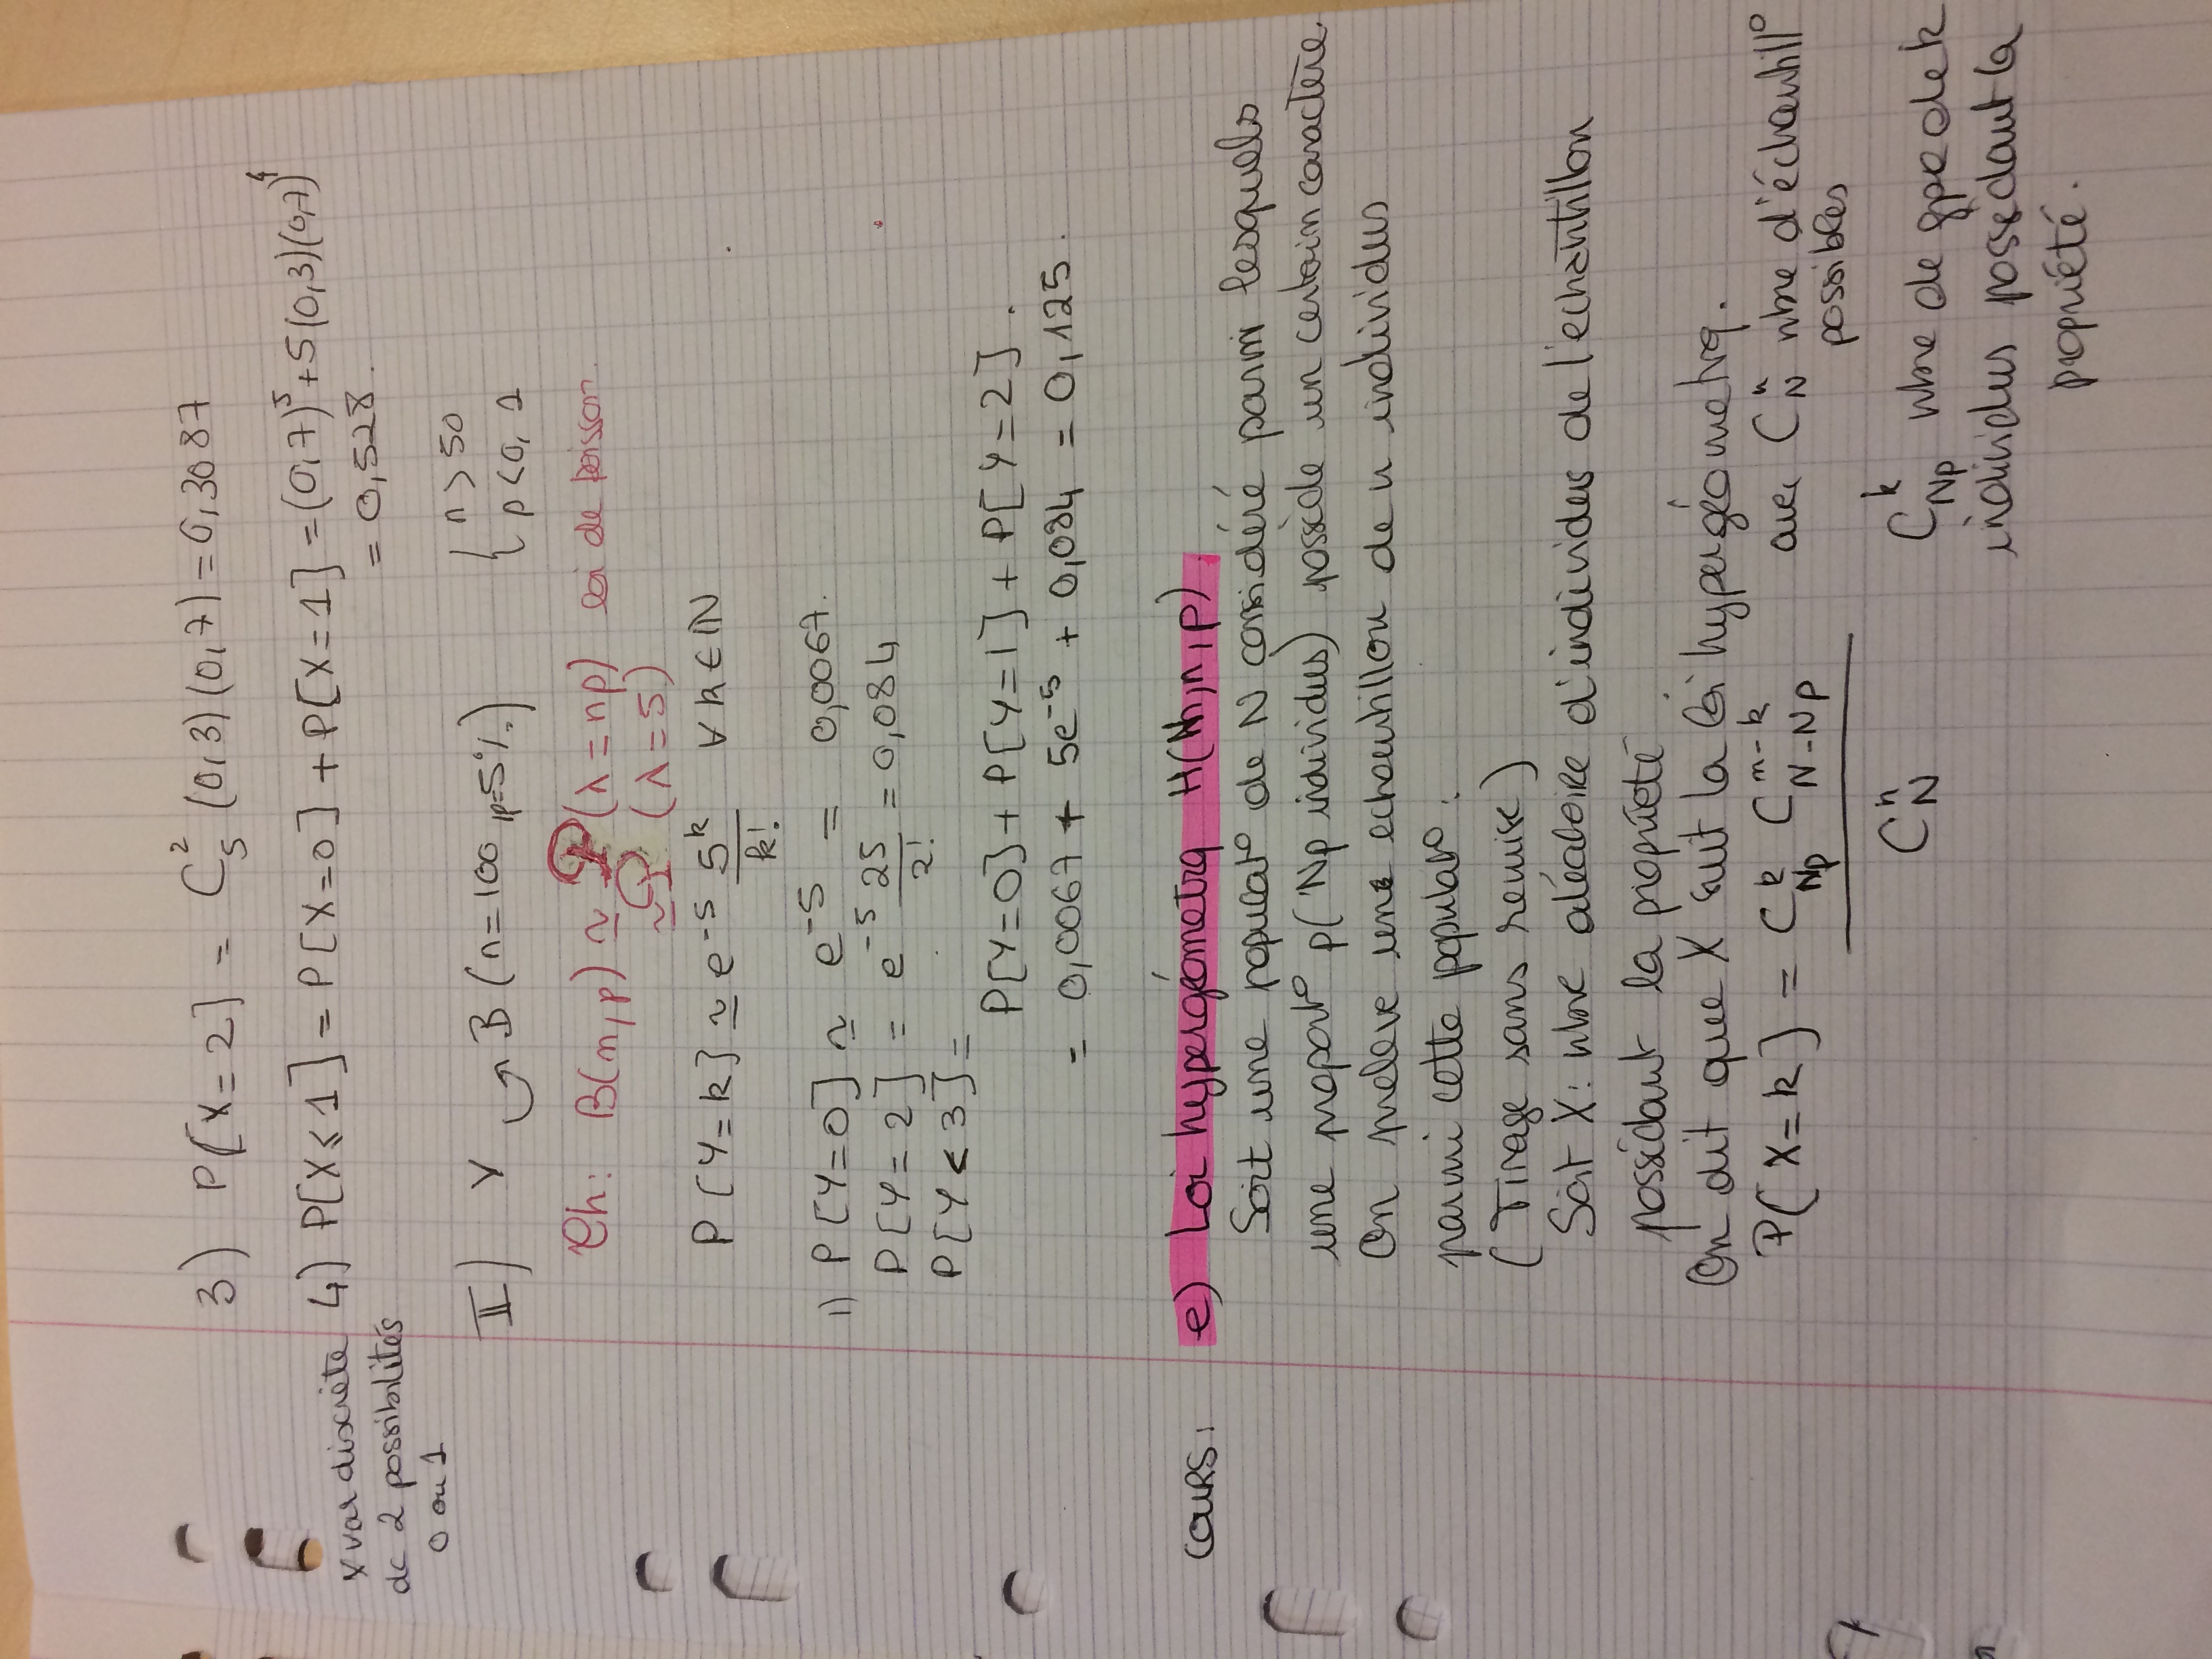 3) P[X=2] = C₅² (0,3)(0,7) = 0,3087
4) P[X≤1] = P[X=0] + P[X=1] = (0,7)⁵ + 5(0,3)(0,7)⁴
= 0,528.
X var discrète
dc 2 possibilités
0 ou 1
II) Y ↪ B (n=100, p=5%.) { n > 50
p < 0,1
Th: B(n,p) ≃ P (λ = np) loi de Poisson.
≃ P (λ = 5)
P[Y=k] ≃ e⁻⁵ 5ᵏ/k! ∀ k ∈ ℕ
1) P[Y=0] ≃ e⁻⁵ = 0,0067.
P[Y=2] = e⁻⁵ 25/2! = 0,084
P[Y<3] =
P[Y=0] + P[Y=1] + P[Y=2].
= 0,0067 + 5e⁻⁵ + 0,084 = 0,125.
COURS: e) Loi hypergéometrq H(N,n,p).
Soit une populat° de N considéré parmi lesquels
une proport° p(Np individus) possède un certain caractère.
On prelève une echantillon de n individus
parmi cette populat°.
(Tirage sans remise)
Soit X: nbre aléatoire d'individus de l'echantillon
possédant la propriété.
On dit que X suit la loi hypergéometrq.
P(X=k) = C_{Np}^{k} C_{N-Np}^{n-k} avec C_{N}^{n} nbre d'échantill°
possibles
C_{N}^{n}
C_{Np}^{k} nbre de gpe de k
individus possédant la
propriété.